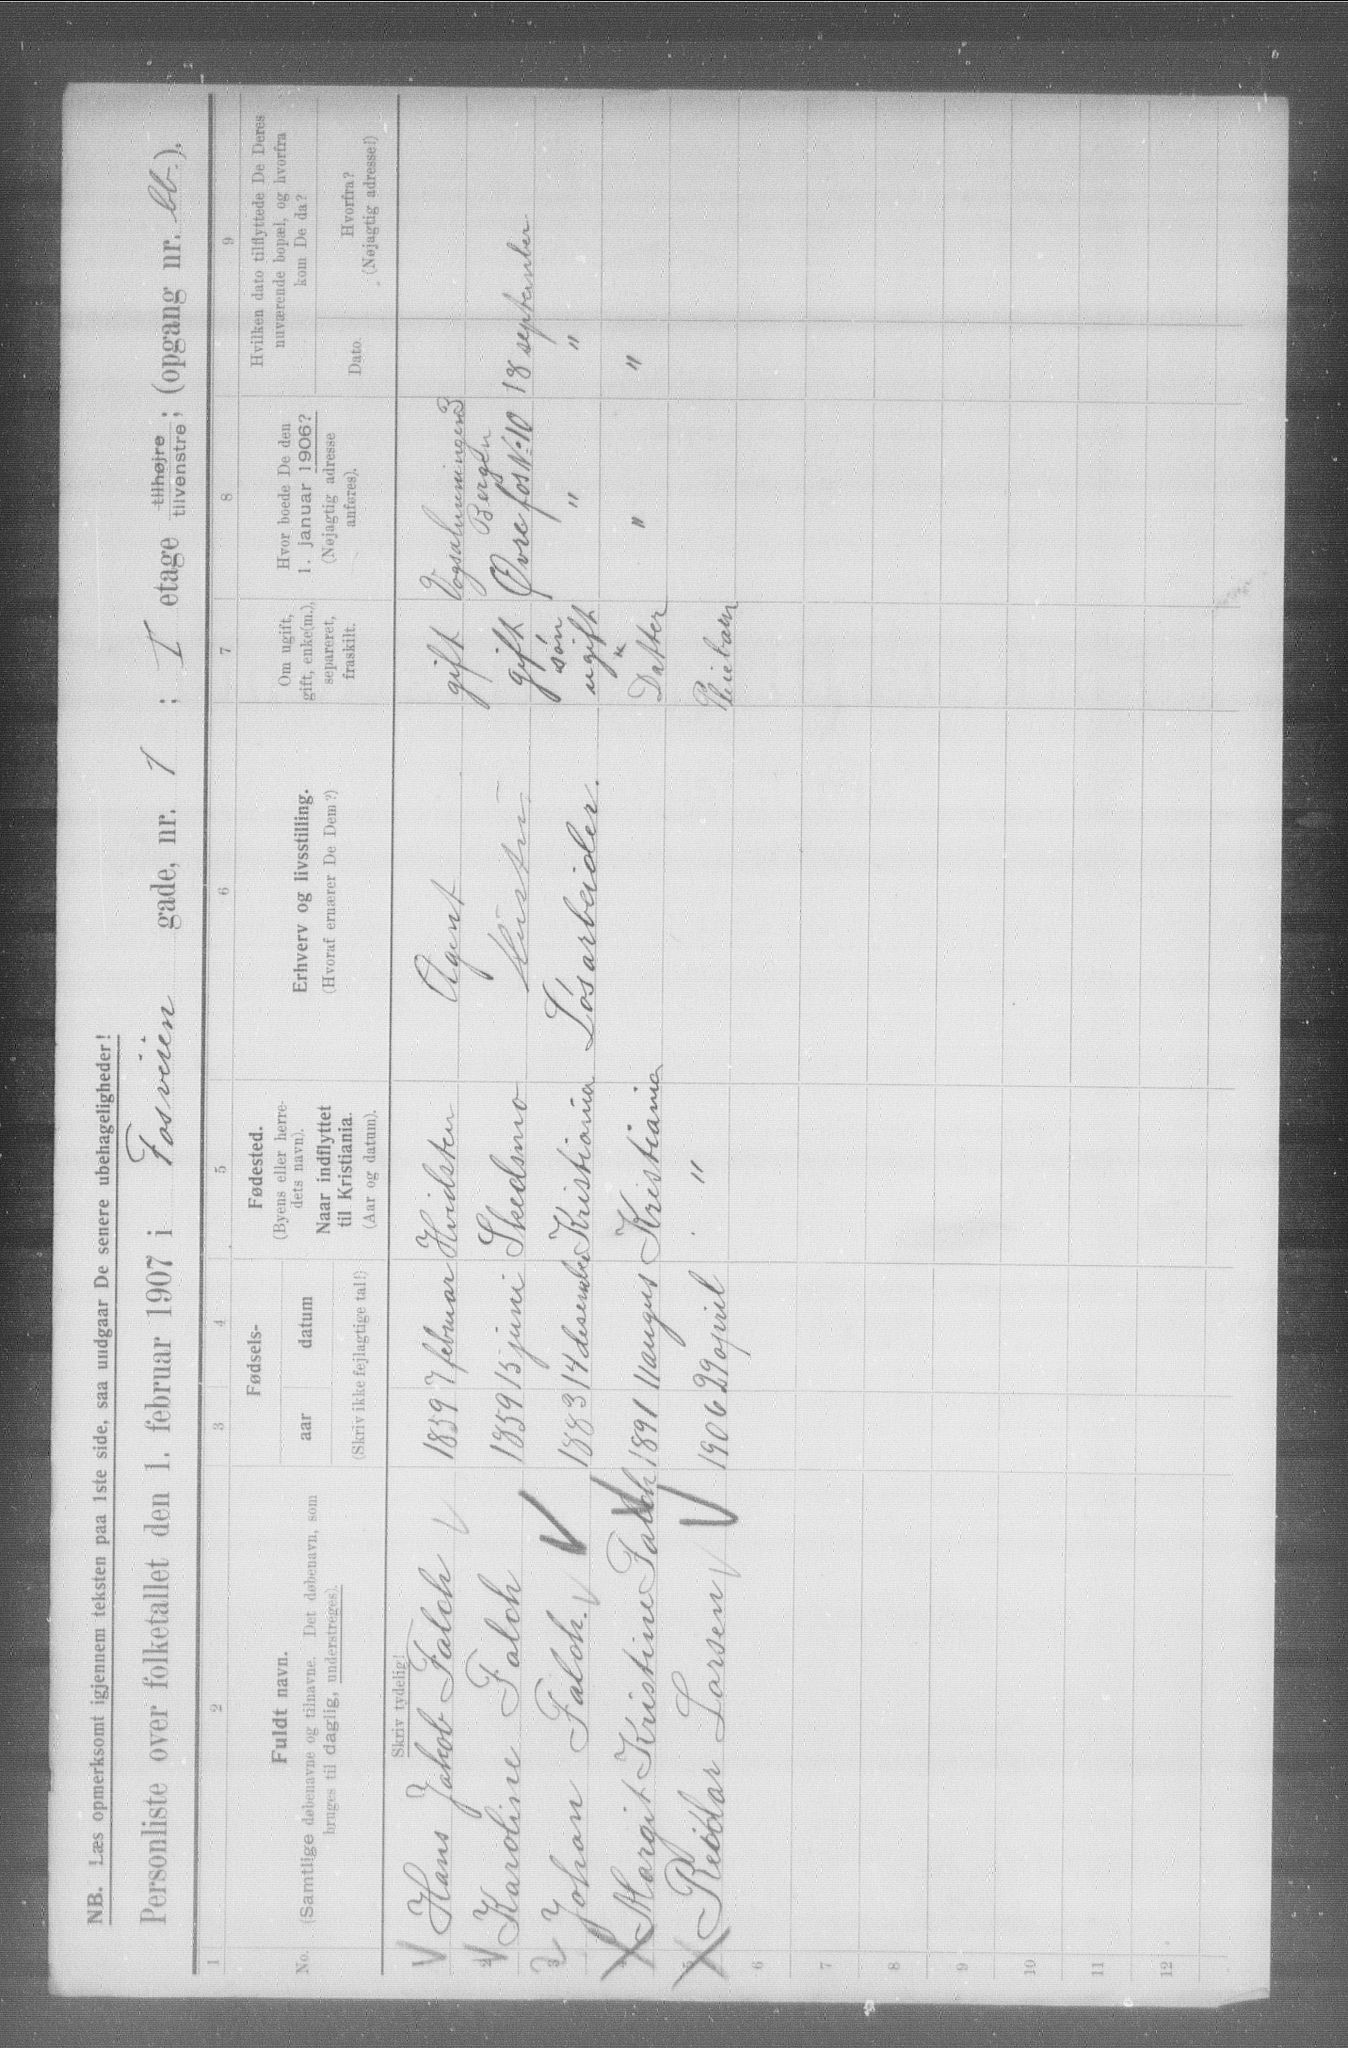 NB. Læs opmerksomt igjennem teksten paa 1ste side, saa undgaar De senere ubehageligheder!
Personliste over folketallet den 1. februar 1907 i Fosveien gade, nr. 1 ; I etage tilhøjre tilvenstre; (opgang nr. bb.).
1 2 3 4 5 6 7 8 9
No.
Fuldt navn.
(Samtlige døbenavne og tilnavne. Det døbenavn, som
bruges til daglig, understreges).
Fødsels-
aar datum
(Skriv ikke fejlagtige tal!)
Fødested.
(Byens eller herre-
dets navn).
Naar indflyttet
til Kristiania.
(Aar og datum).
Erhverv og livsstilling.
(Hvoraf ernærer De Dem?)
Om ugift,
gift, enke(m.),
separeret,
fraskilt.
Hvor boede De den
1. januar 1906?
(Nøjagtig adresse
anføres).
Hvilken dato tilflyttede De Deres
nuværende bopæl, og hvorfra
kom De da?
Dato.
Hvorfra?
(Nøjagtig adresse!)
Skriv tydelig!
Hans Jakob Falch 1859 7 februar Hvidsten Agent gift
Bergen
2 Karoline Falch 1859 15 juni Skedsmo Hustru gift Øvre fos No 10 18 september
3 Johan Falch. 1883 14 desember Kristiania Løsarbeider. søn ugift " "
4 Margit Kristine Falch 1891 11 augus Kristiania " Datter " "
5 Reidar Larsen 1906 29 april " Pleiebarn
6
7
8
9
10
11
12